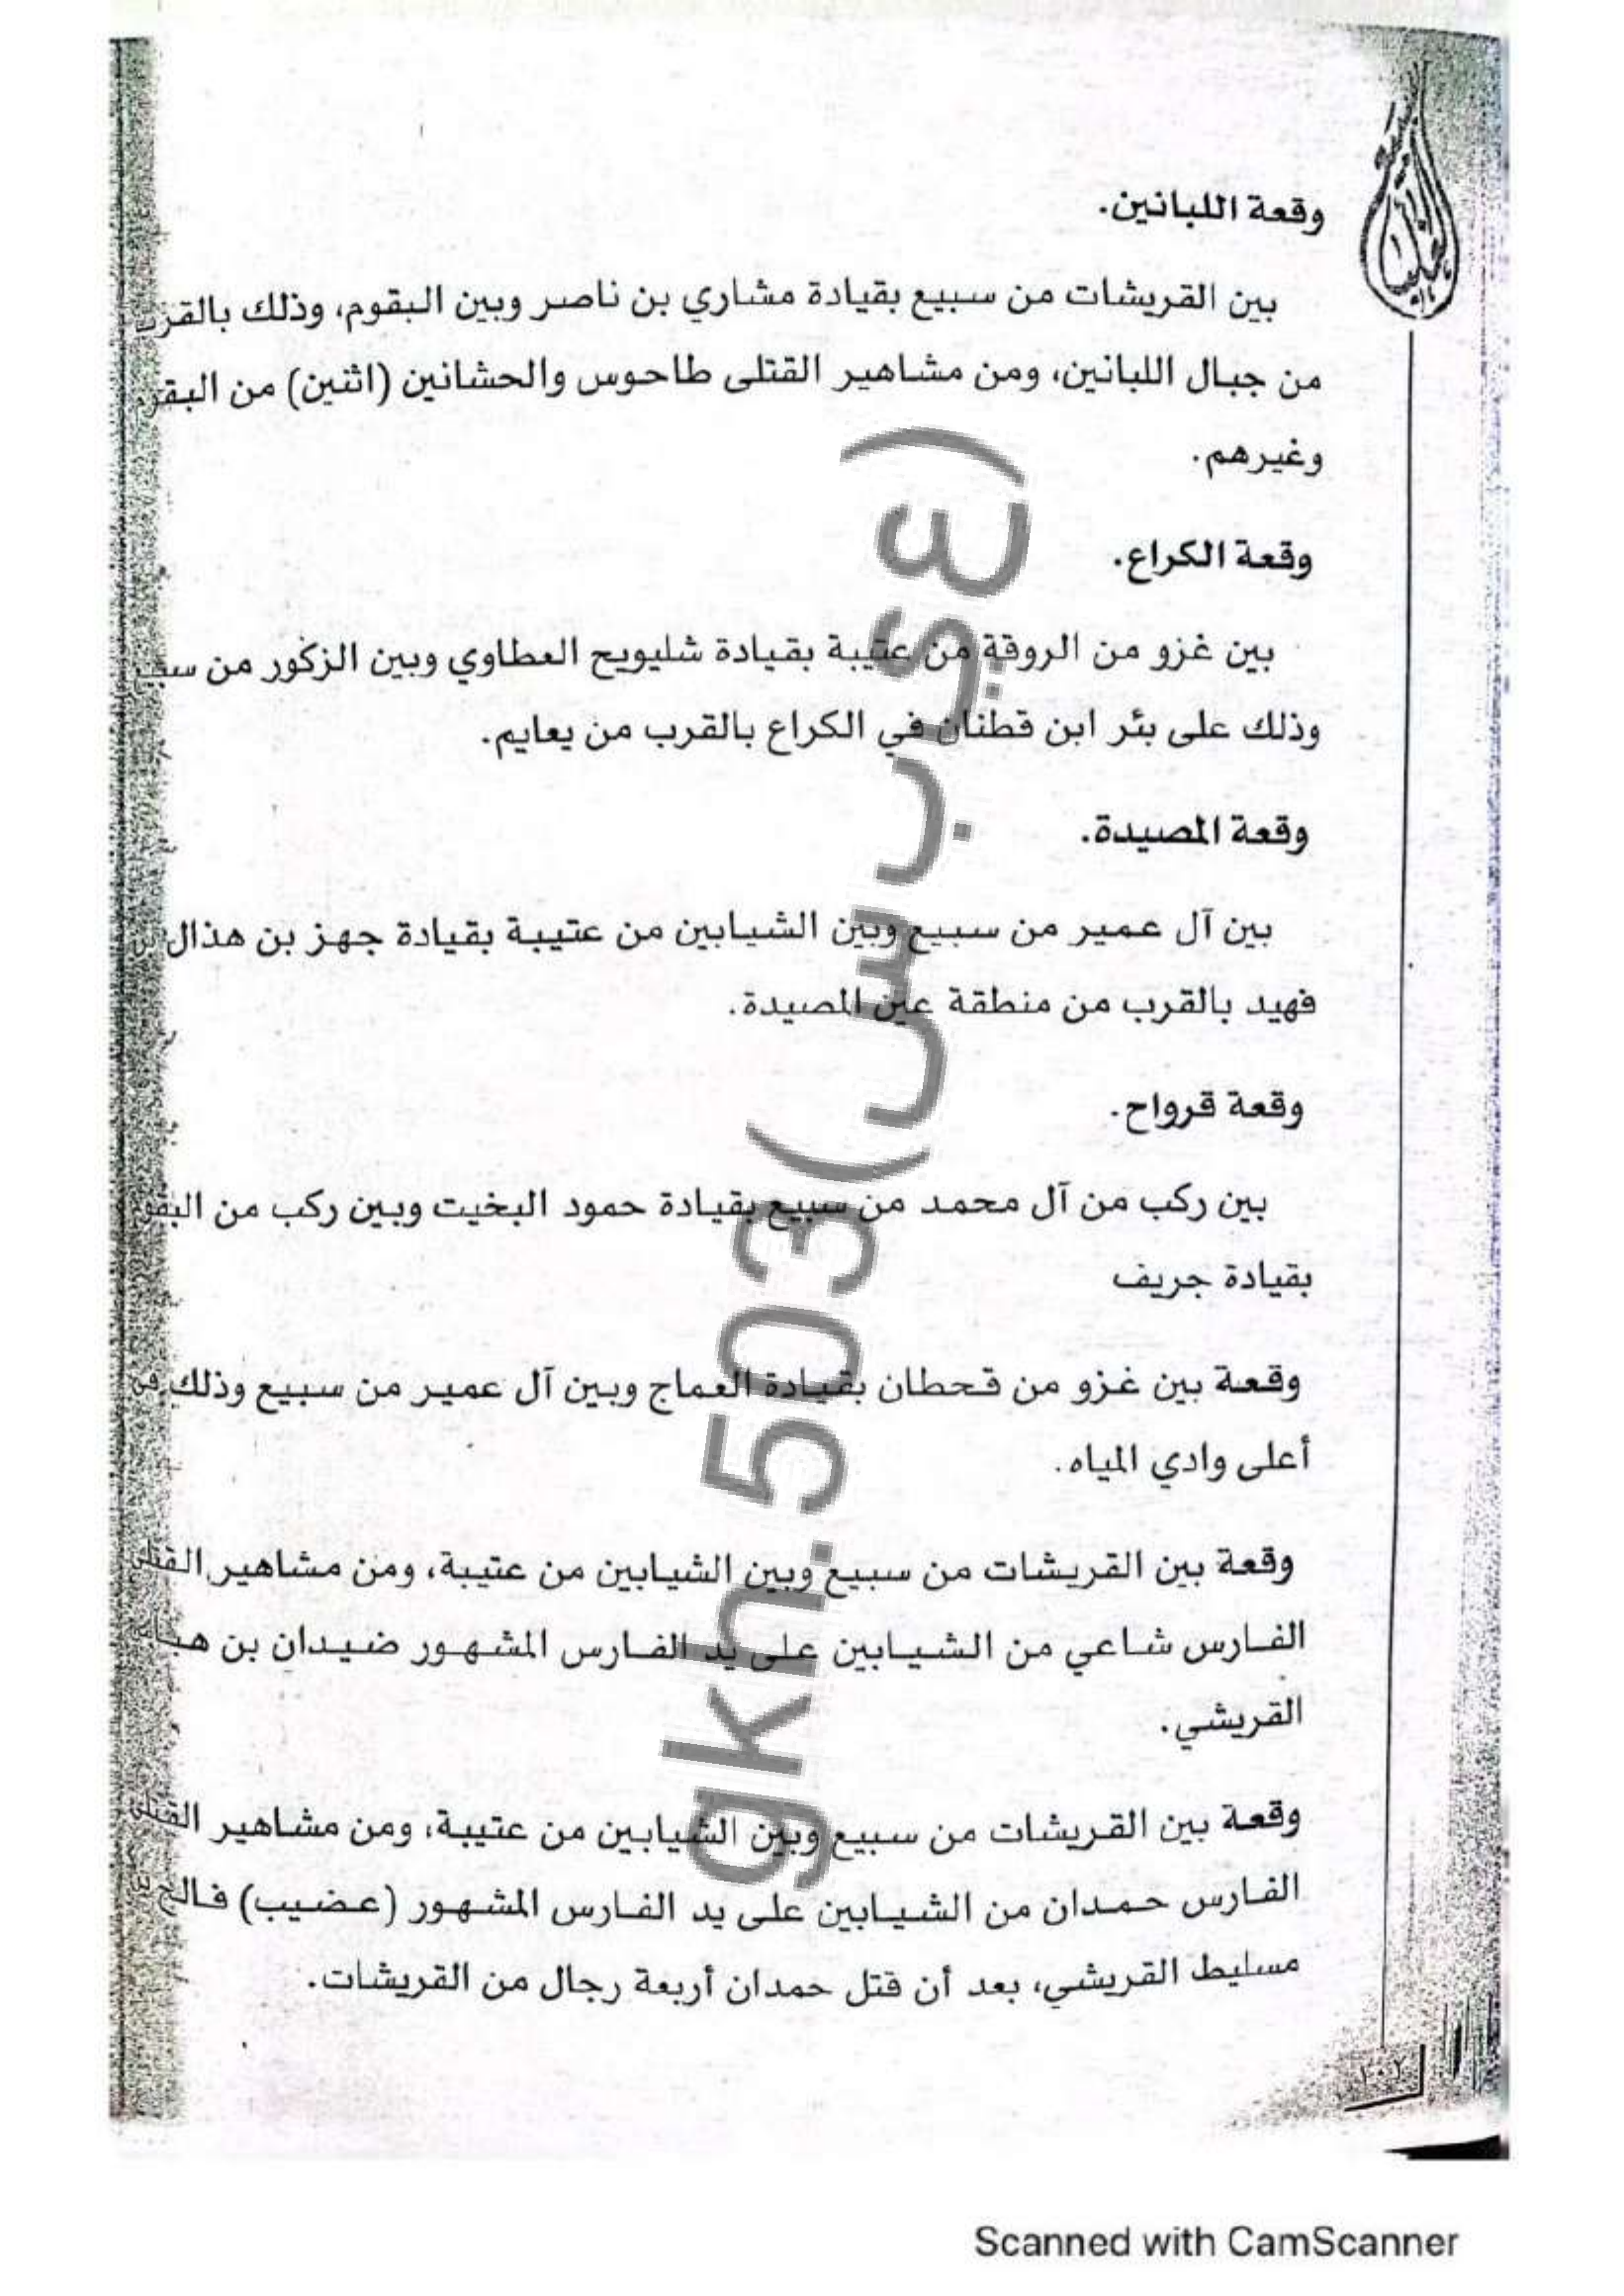 وقعة اللبانين.
بين القريشات من سبيع بقيادة مشاري بن ناصر وبين البقوم، وذلك
من جبال اللبانين، ومن مشاهير القتلى طاحوس والحشانين (اثنين) من
وغيرهم.
وقعة الكراع.
بين غزو من الروقة من عتيبة بقيادة شليويح العطاوي وبين الزكور من
وذلك على بئر ابن قطنان في الكراع بالقرب من يعايم.
وقعة المصيدة.
بين آل عمير من سبيع وبين الشيابين من عتيبة بقيادة جهز بن هذال
فهيد بالقرب من منطقة عين المصيدة.
وقعة قرواح.
بين ركب من آل محمد من سبيع بقيادة حمود البخيت وبين ركب من
بقيادة جريف
وقعة بين غزو من قحطان بقيادة العماج وبين آل عمير من سبيع وذلك في
أعلى وادي المياه.
وقعة بين القريشات من سبيع وبين الشيابين من عتيبة، ومن مشاهير
الفارس شاعي من الشيابين على يد الفارس المشهور ضيدان بن
القريشي.
وقعة بين القريشات من سبيع وبين الشيابين من عتيبة، ومن مشاهير
الفارس حمدان من الشيابين على يد الفارس المشهور (عضيب) فالح
مسليط القريشي، بعد أن قتل حمدان أربعة رجال من القريشات.
gkh.503(س ب ي ع)
Scanned with CamScanner